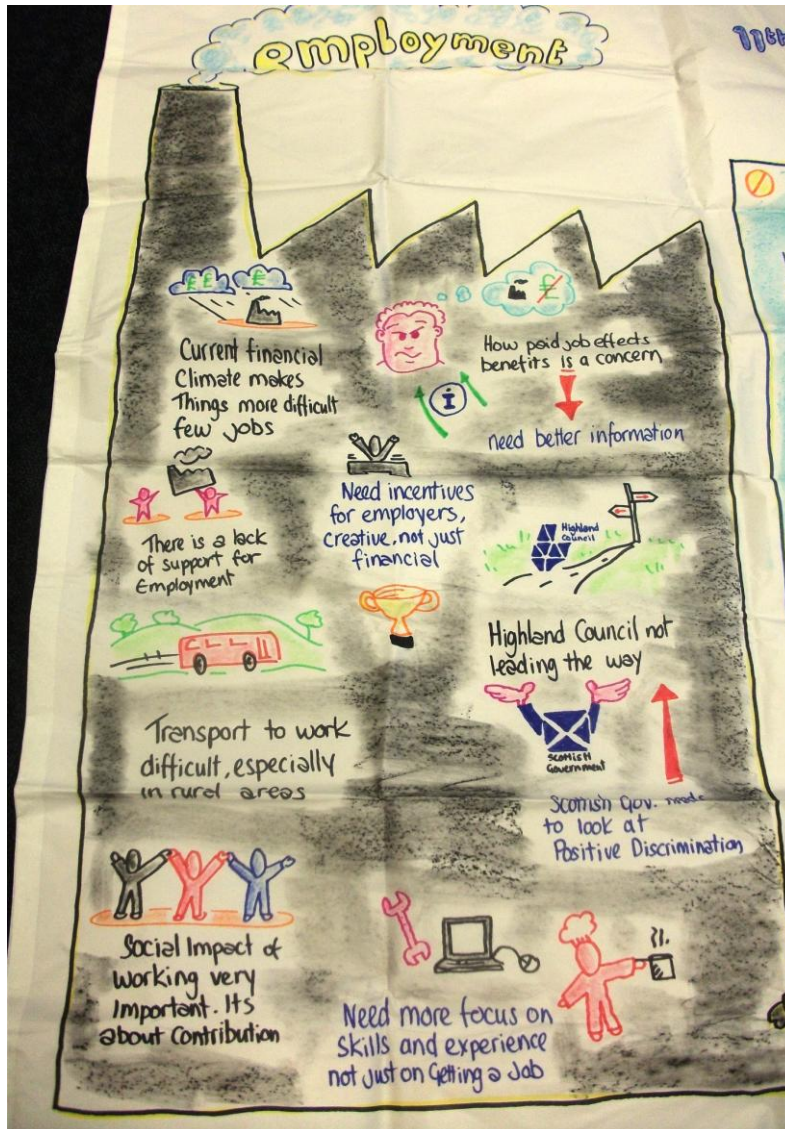 employment
11th
££
£
£
Current financial
Climate makes
Things more difficult
few jobs
How paid job effects
benefits is a concern
i
need better information
Need incentives
for employers,
creative, not just
financial
There is a lack
of support for
Employment
Highland
Council
Highland Council not
leading the way
Transport to work
difficult, especially
in rural areas
Scottish
Government
Scottish Gov. needs
to look at
Positive Discrimination
Social Impact of
working very
Important. Its
about Contribution
Need more focus on
skills and experience
not just on Getting a Job